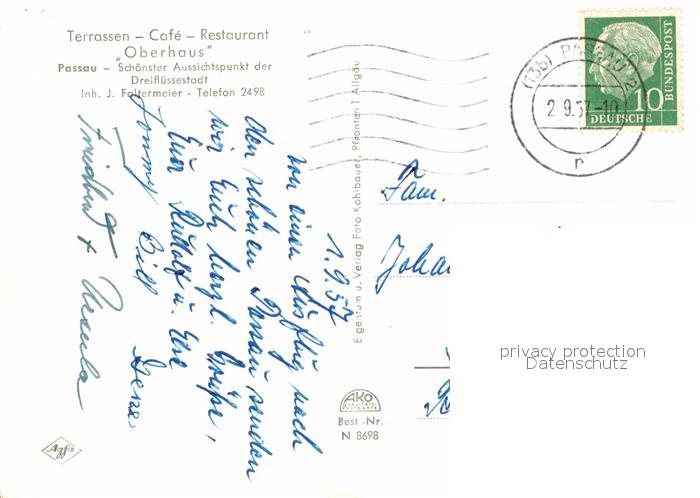 Terrassen – Café – Restaurant
"Oberhaus"
Passau – Schönster Aussichtspunkt der
Dreiflüssestadt
Inh. J. Faltermeier · Telefon 2498
(13b) PASSAU 2
2.9.57-10
r
10
DEUTSCHE
BUNDESPOST
1.9.57
Von einem Ausflug nach
dem schönen Passau senden
wir Euch herzl. Grüße,
Eure Rudolf u. Else
Tommy Bill
Friedbert + Ursula
Eigentum u. Verlag Foto Kohlbauer, Pfronten / Allgäu
Fam.
Joha
AKO
QUALITÄTS-
POSTKARTE
Best.-Nr.
N 8698
Agfa
privacy protection
Datenschutz